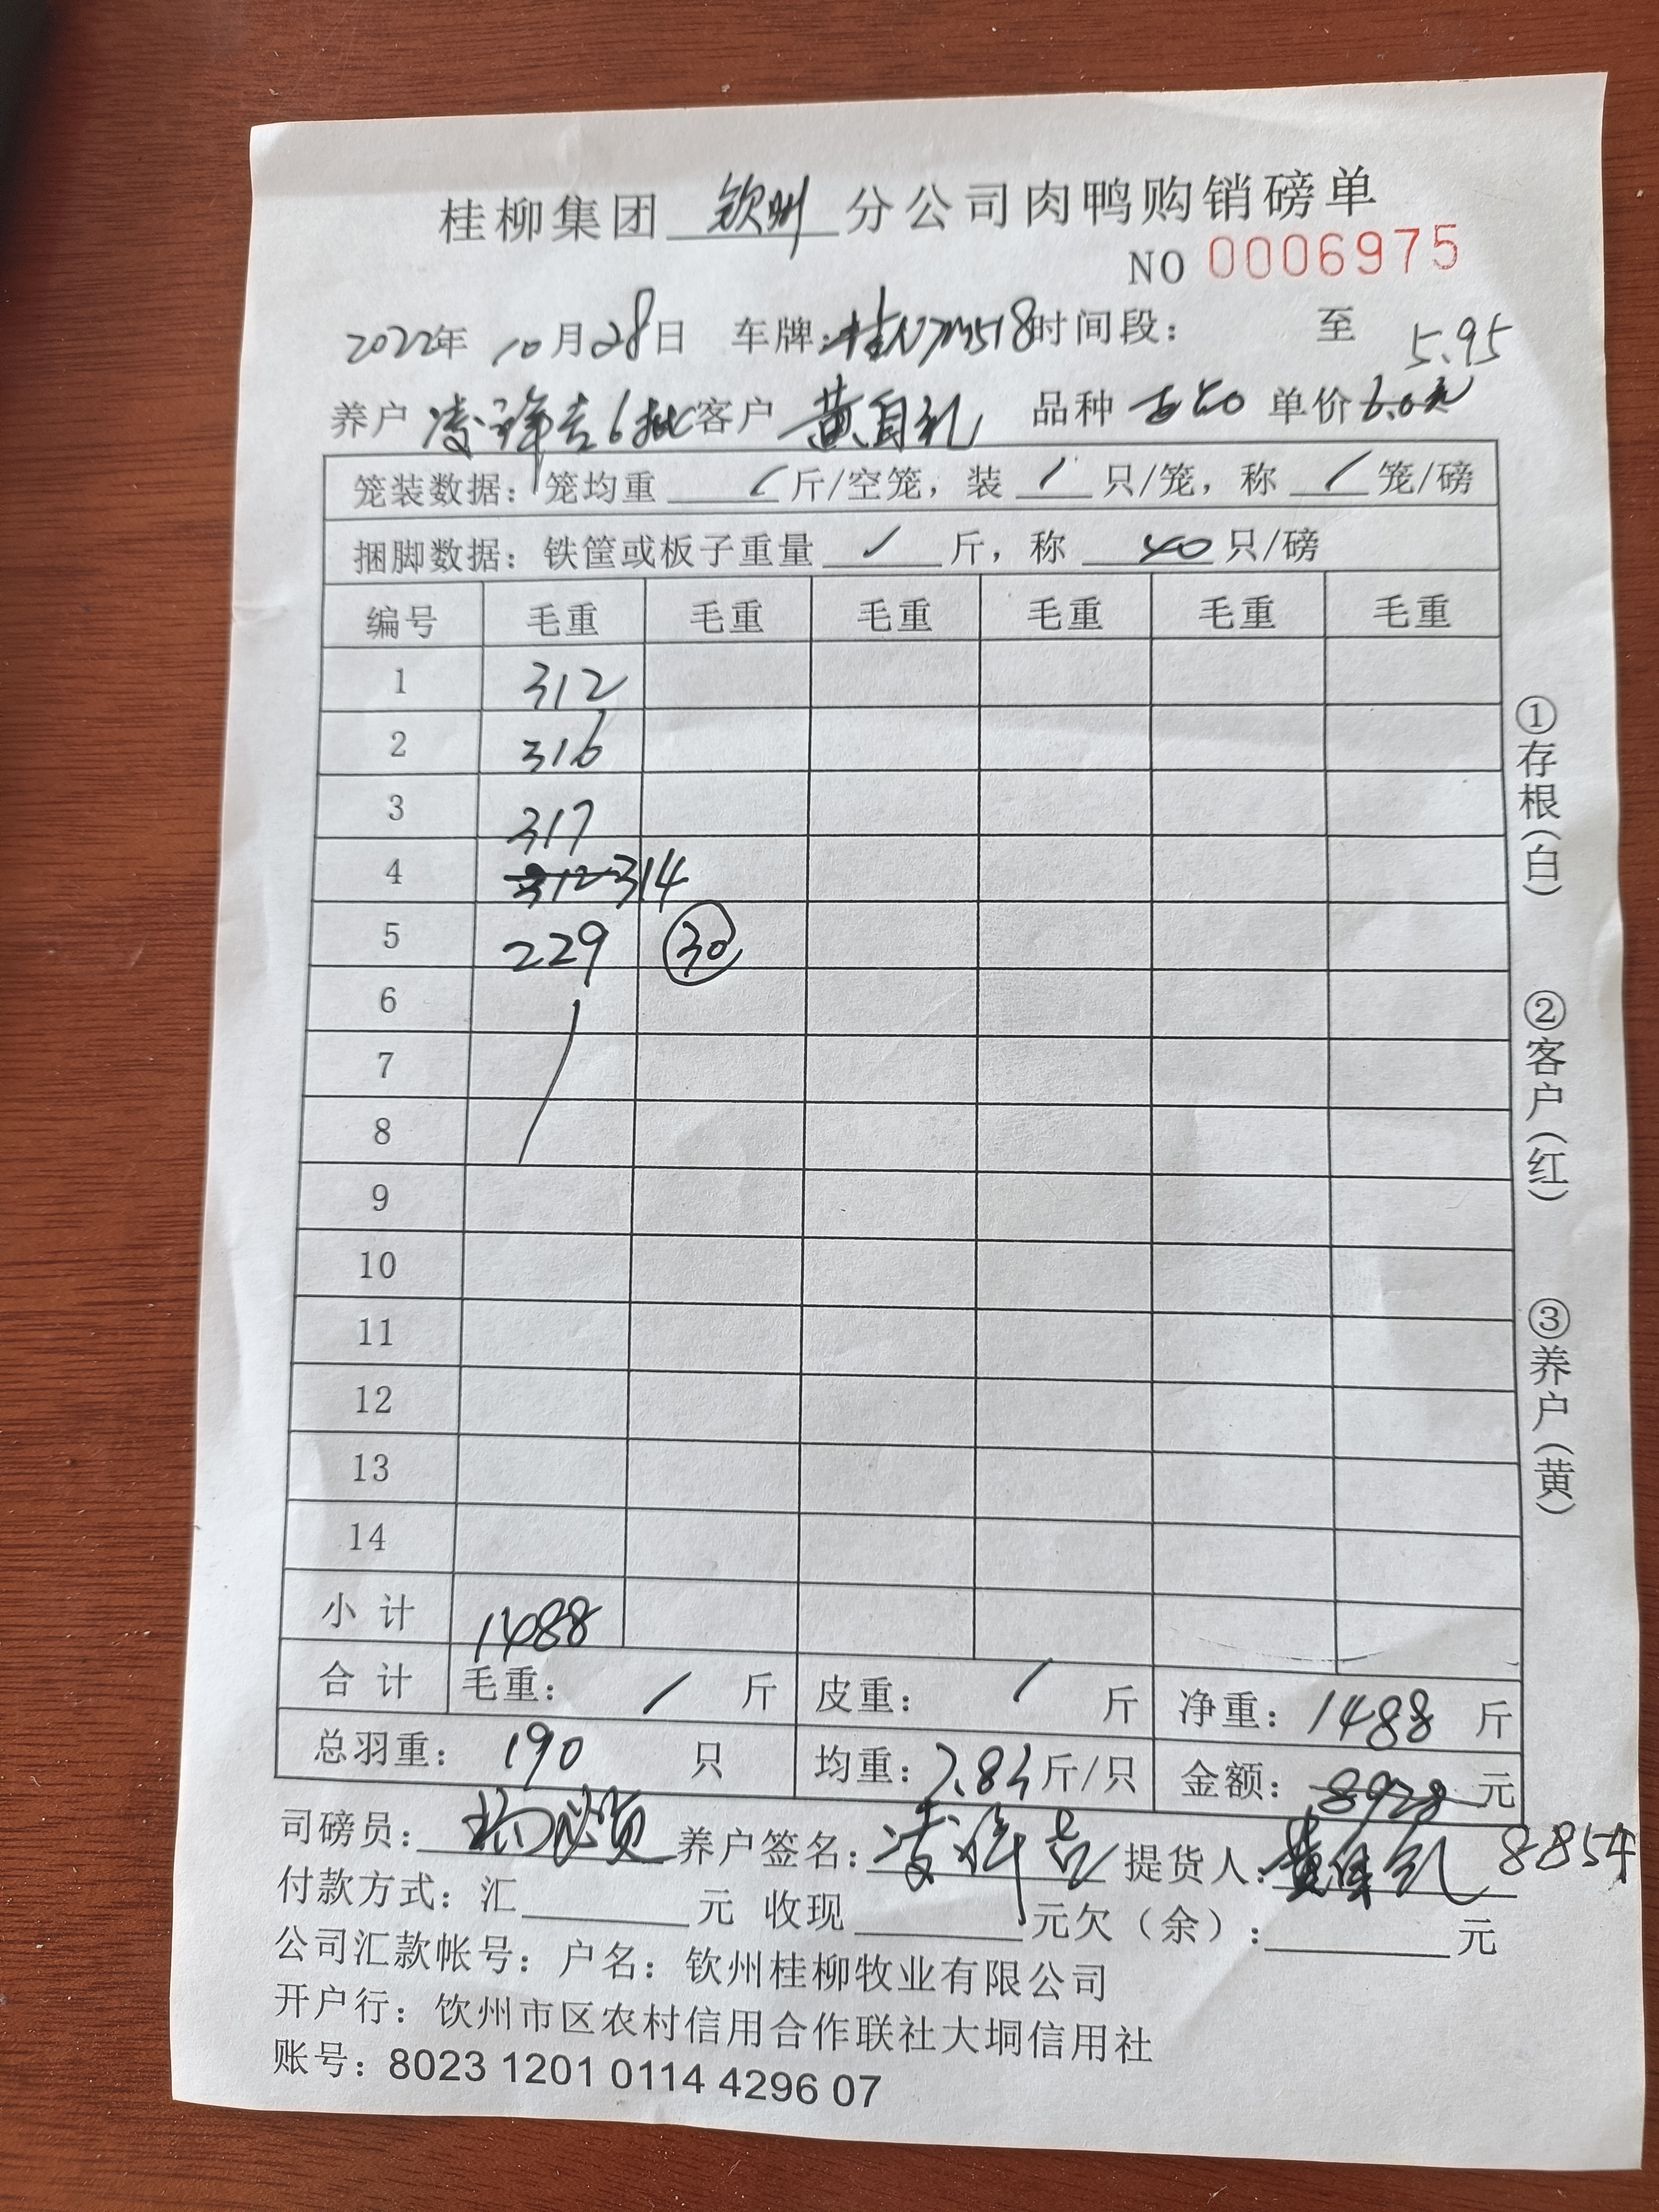 桂柳集团 钦州 分公司肉鸭购销磅单
NO 0006975
2022年 10月28日 车牌: 时间段: 至
5.95
养户 6批 客户 黄自礼 品种 单价 6.0元
笼装数据: 笼均重 / 斤/空笼, 装 / 只/笼, 称 / 笼/磅
捆脚数据: 铁筐或板子重量 / 斤, 称 40 只/磅
编号 毛重 毛重 毛重 毛重 毛重 毛重
1 312
2 316
3 317
4 312 314
5 229 30
6
7
8
9
10
11
12
13
14
小计 1488
合计 毛重: / 斤 皮重: / 斤 净重: 1488 斤
总羽重: 190 只 均重: 7.83 斤/只 金额: 8928 元
8854
司磅员: 养户签名: 提货人:
付款方式: 汇 元 收现 元欠（余）: 元
公司汇款帐号: 户名: 钦州桂柳牧业有限公司
开户行: 钦州市区农村信用合作联社大垌信用社
账号: 8023 1201 0114 4296 07
①存根(白)
②客户(红)
③养户(黄)